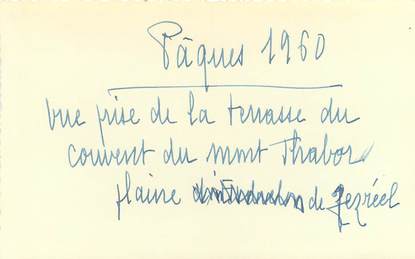 Pâques 1960
vue prise de la terrasse du
couvent du mont Thabor
plaine de Jezréel